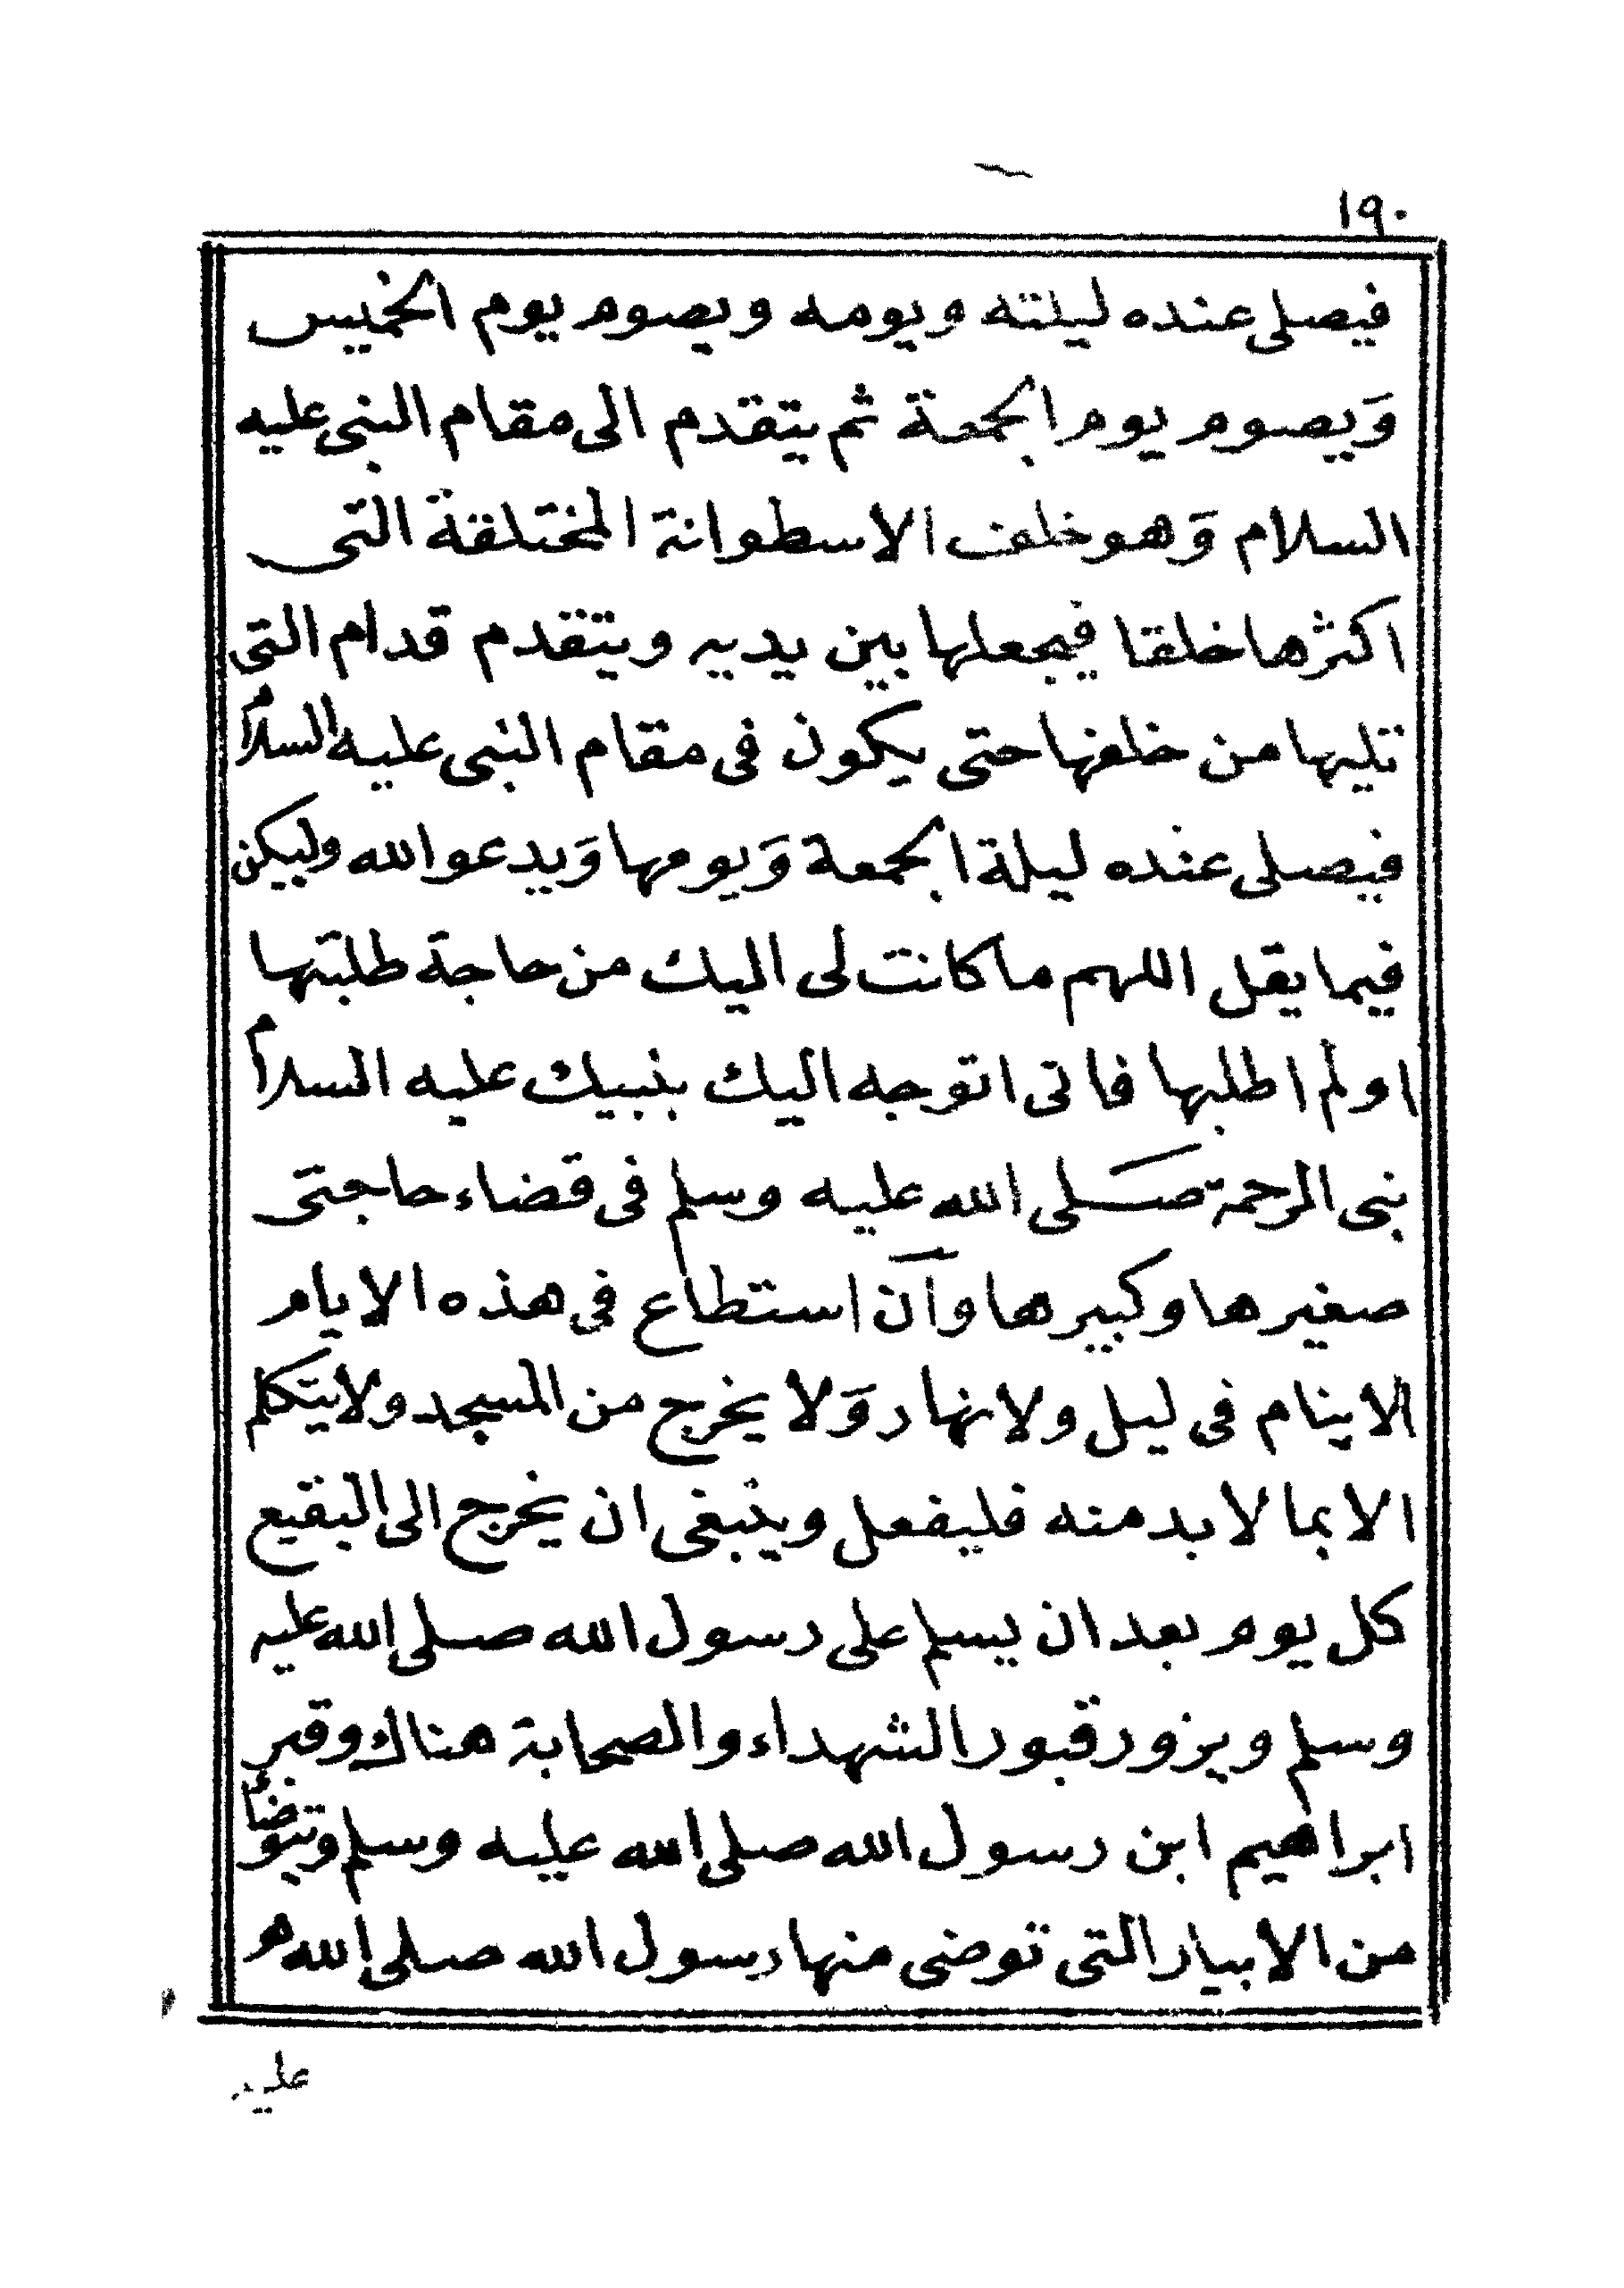 ١٩٠
فيصلى عنده ليلته ويومه ويصوم يوم الخميس
وَيصوم يوم الجمعة ثم يتقدم الى مقام النبى عليه
السلام وَهو خلف الاسطوانة المختلقة التى
اكثرها خلقا فيجعلها بين يديه ويتقدم قدام التى
تليها من خلفها حتى يكون فى مقام النبى عليه السلام
فيصلى عنده ليلة الجمعة وَيومها وَيدعو الله وليكن
فيما يقل اللهم ما كانت لى اليك من حاجة طلبتها
او لم اطلبها فانى اتوجه اليك بنبيك عليه السلام
نبى الرحمة صَلى الله عليه وسلم فى قضاء حاجتى
صغيرها وكبيرها وآن استطاع فى هذه الايام
الاينام فى ليل ولا نهار وَلا يخرج من المسجد ولا يتكلم
الا بما لا بد منه فليفعل وينبغى ان يخرج الى البقيع
كل يوم بعد ان يسلم على رسول الله صلى الله عليه
وسلم ويزور قبور الشهداء والصحابة هناك وقبر
ابراهيم ابن رسول الله صلى الله عليه وسلم ويتوضأ
من الابيار التى توضى منها رسول الله صلى الله
عليه